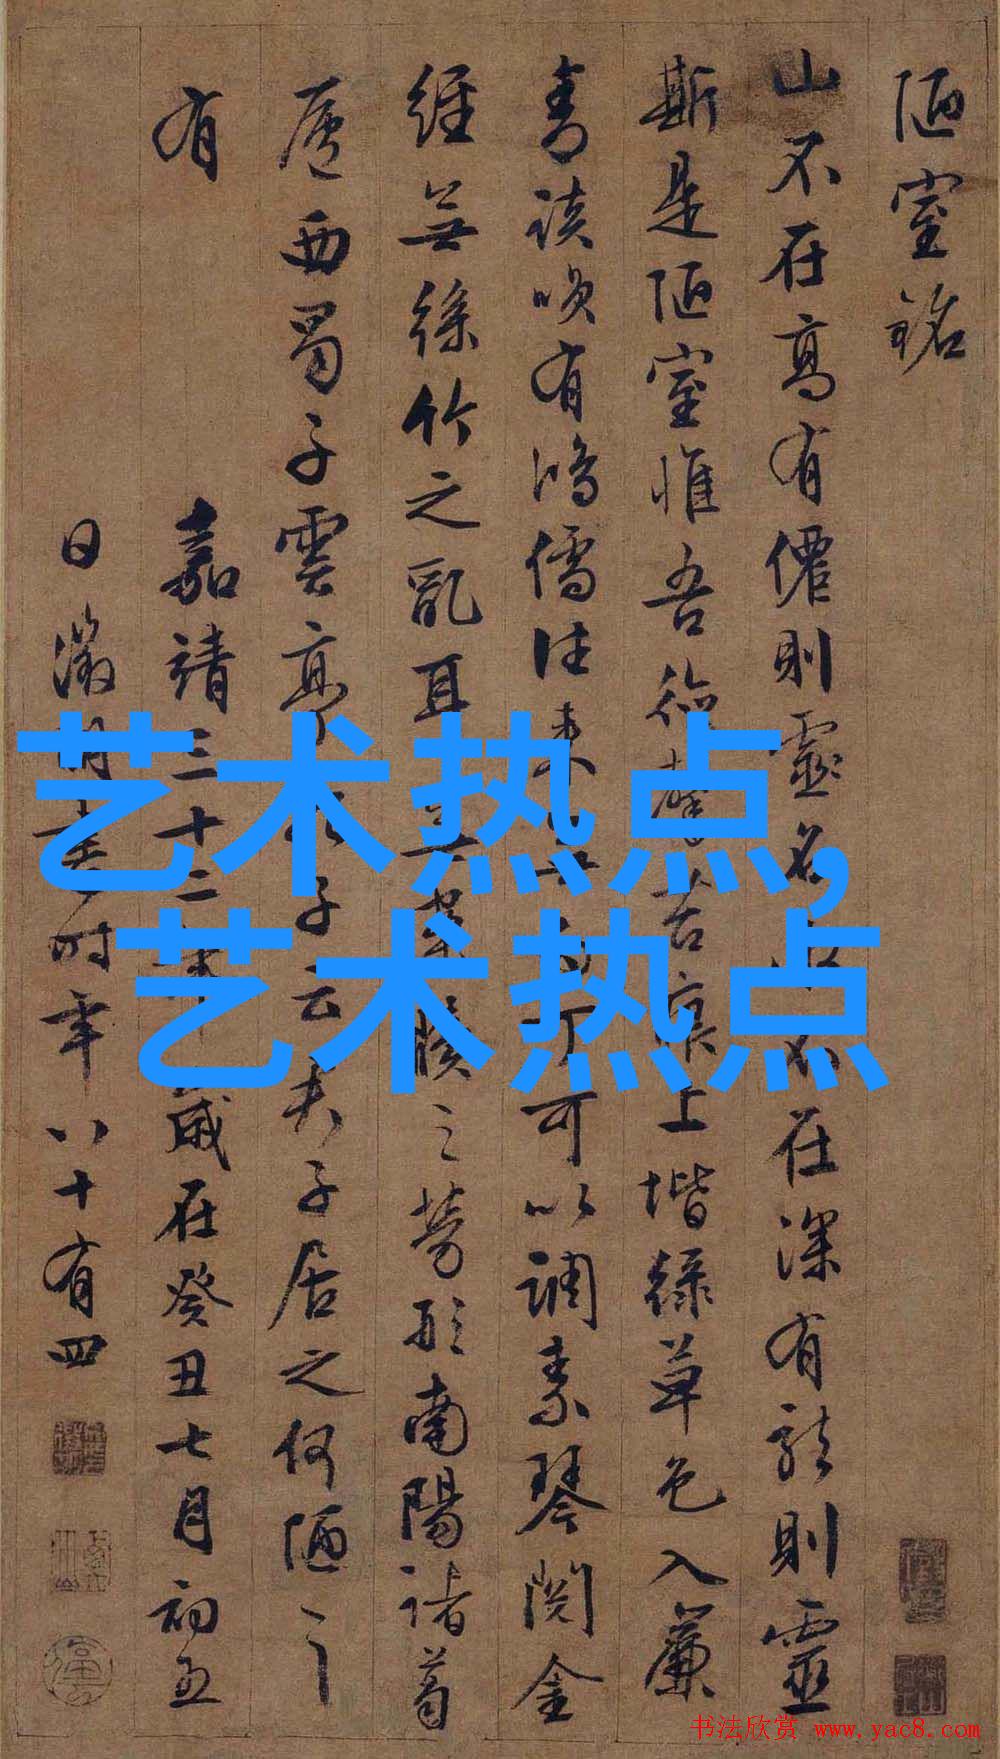 陋室銘
山不在高有僊則靈名水不在深有龍則靈
斯是陋室惟吾德馨苔痕上堦綠草色入簾
青談咲有鴻儒往來無白丁可以調素琴閱金
經無絲竹之亂耳無案牘之勞形南陽諸葛
廬西蜀子雲亭孔子云夫子居之何陋之
有
嘉靖三十二年歲在癸丑七月初五
日徵明書時年八十有四
艺术热点,
艺术热点
书法欣赏 www.yac8.com